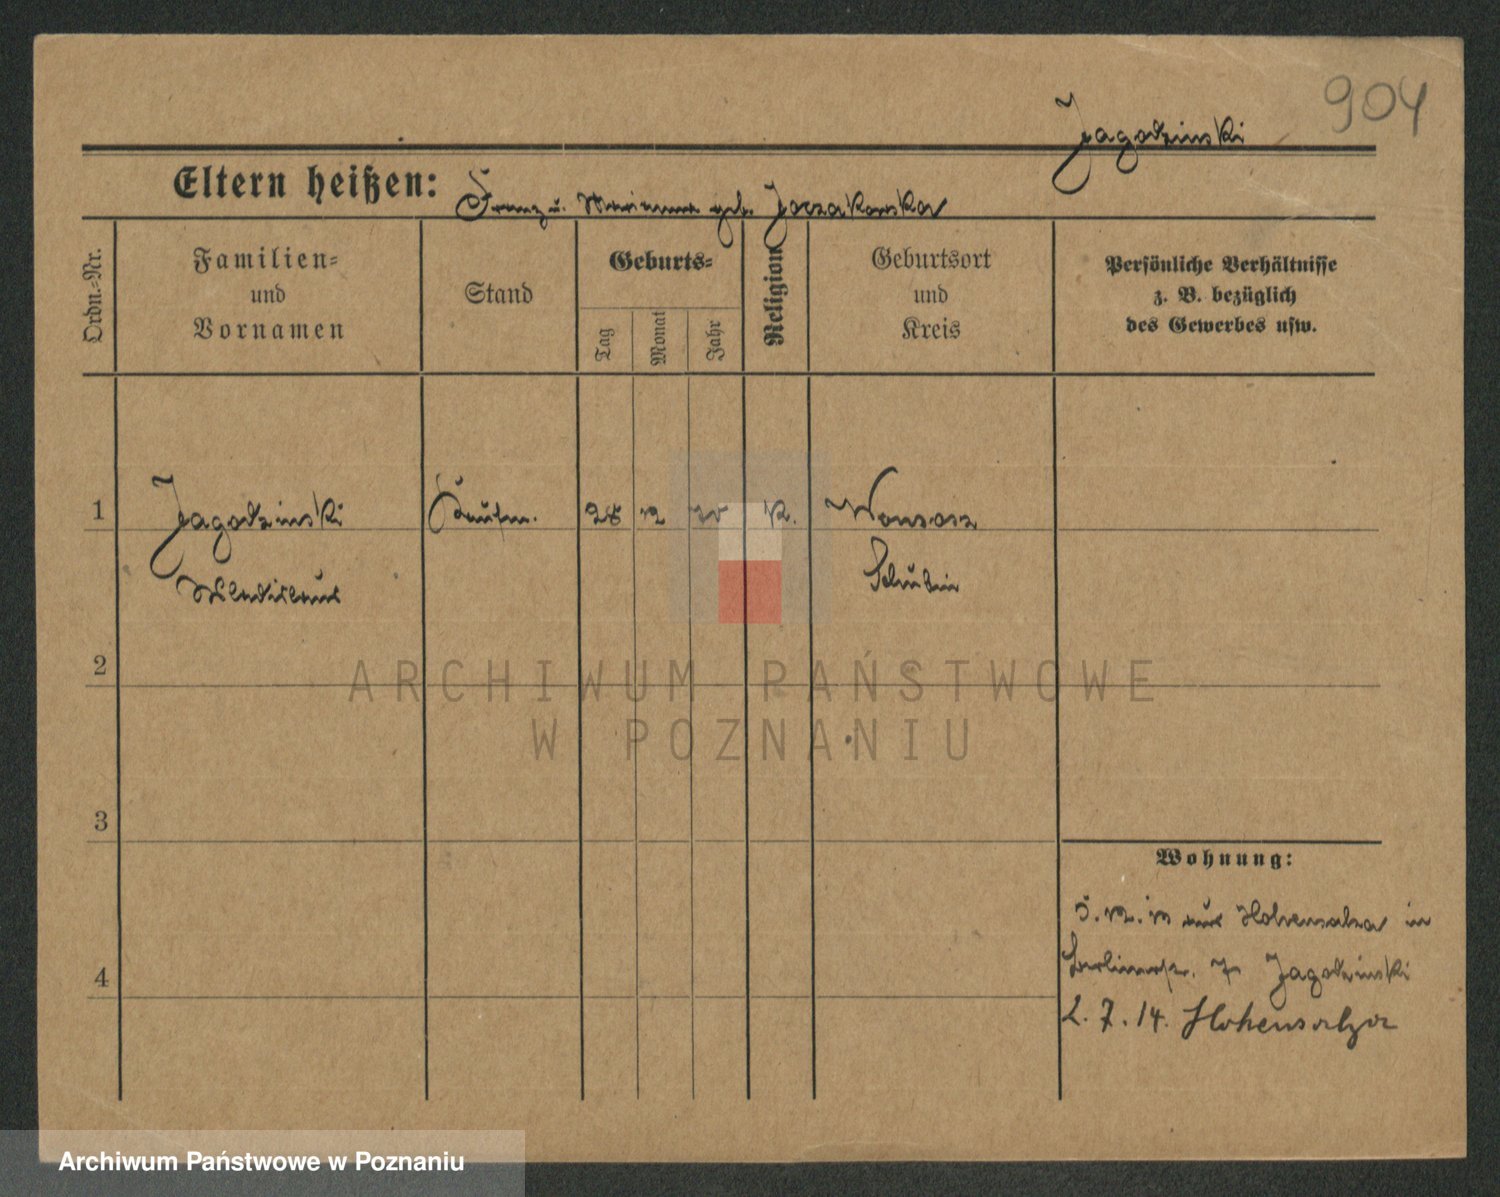 904
Jagodzinski
Eltern heißen: Franz u. Marianna geb. Jaczakowska
Ordn.=Nr.
Familien=
und
Vornamen
Stand
Geburts=
Tag
Monat
Jahr
Religion
Geburtsort
und
Kreis
Persönliche Verhältnisse
z. B. bezüglich
des Gewerbes usw.
1 Jagodzinski Kaufm. 28 k. Wonsosz
Wladislaus Schubin
2
ARCHIWUM PAŃSTWOWE
W POZNANIU
3
Wohnung:
5. aus Hohensalza in
Berlinerstr. 7 Jagodzinski
4
2. 7. 14. Hohensalza
Archiwum Państwowe w Poznaniu